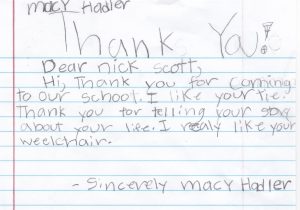 macy Hadler
Thank You!
Dear nick scott,
Hi, Thank you for coming
to our school. I like your tie.
Thank you for telling your story
about your life. I realy like your
weelchair.
- Sincerely macy Hadler